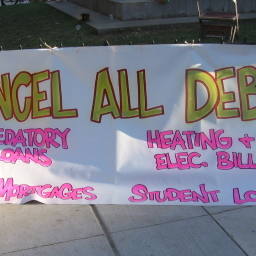 NCEL ALL DEB
EDATORY HEATING +
OANS ELEC. BILL
MORTGAGES STUDENT LO